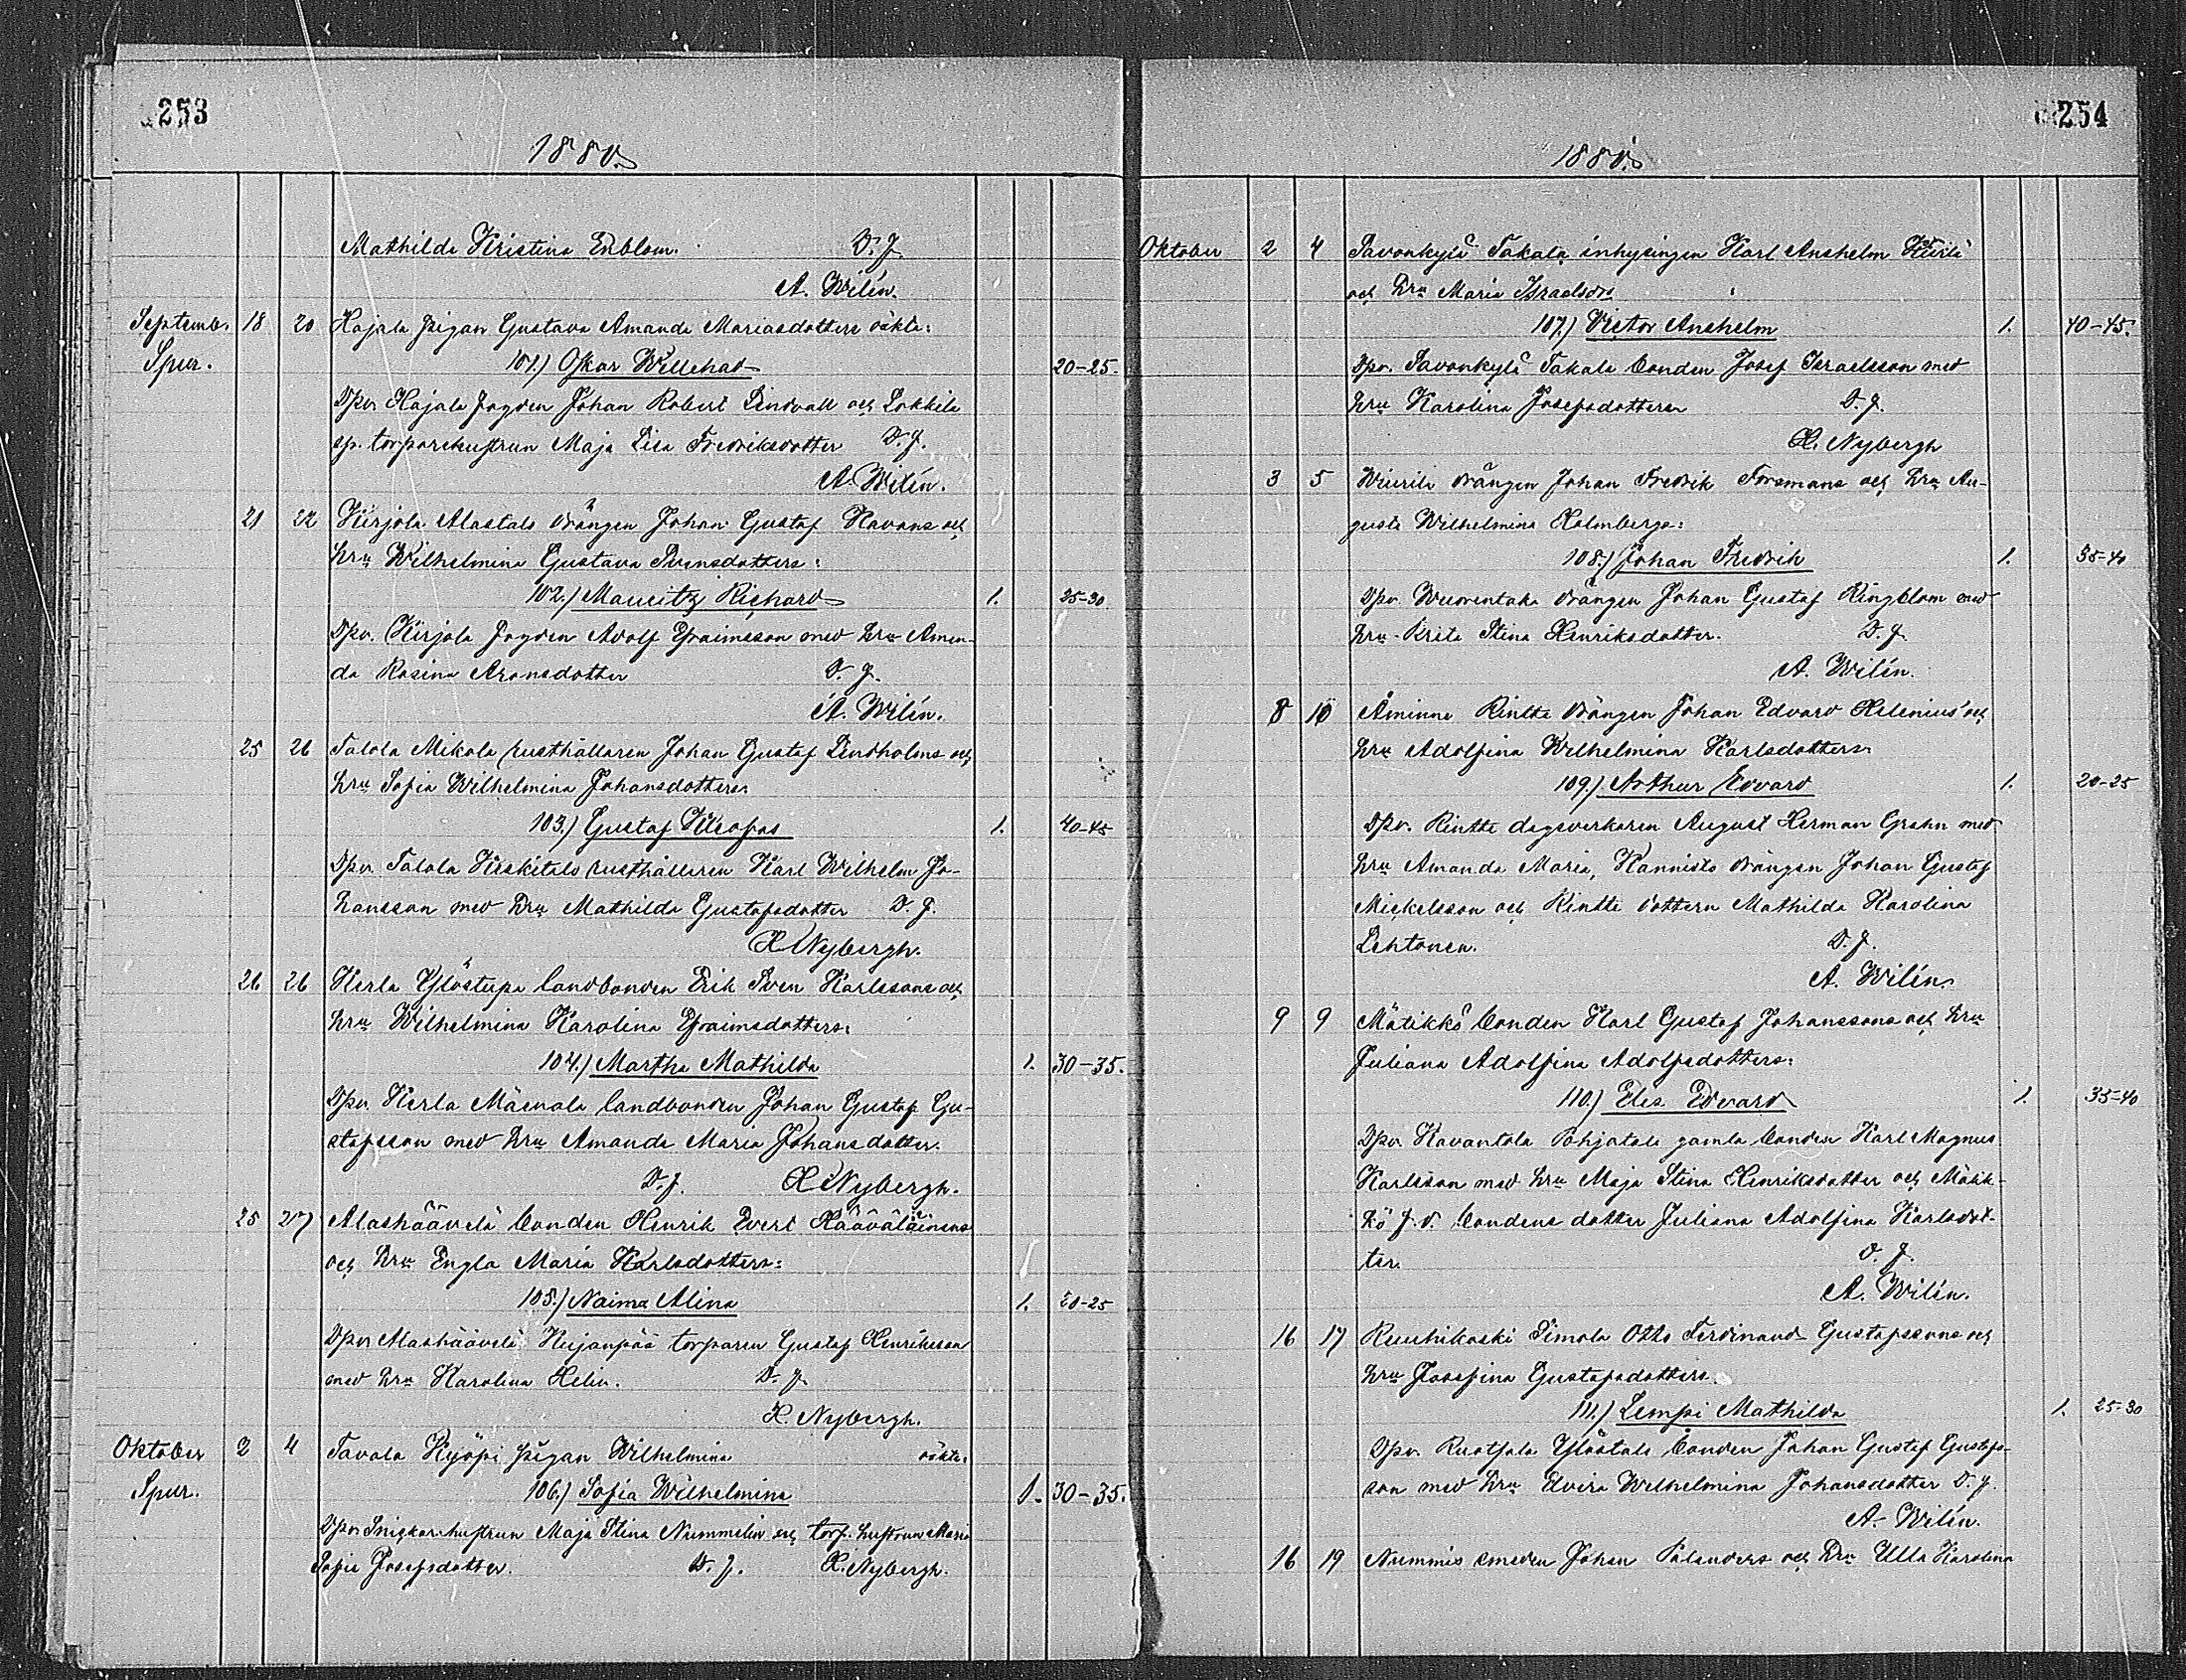 253
1880
Mathilda Kristina Enblom. D. J.
A. Wilén.
Septemb. 18 20 Hajala pigan Gustava Amanda Mariasdotters oäkta:
Spur. 101.) Oskar Willehad 20-25.
Dpv. Hajala sogden Johan Robert Lindvall och Lokkila
sp. torparehustrun Maja Lisa Fredriksdotter D. J.
A. Wilén.
21 22 Kirjola Alastalo drängen Johan Gustaf Havans och
hru Wilhelmina Gustava Svensdotters:
102.) Mauritz Richard 1. 25-30
Dpv. Kirjola sogden Adolf Efraimsson med hru Aman-
da Rosina Aronsdotter D. J.
A. Wilén.
25 26 Talola Mikola rusthållaren Johan Gustaf Lindholms och
hru Sofia Wilhelmina Johansdotters:
103.) Gustaf Kleofas 1. 40-45
Dpv. Talola Keskitalo rusthållaren Karl Wilhelm Jo-
hansson med hru Mathilda Gustafsdotter D. J.
K. Nybergh.
26 26 Kerla Ylöstupa landbonden Erik Sven Karlssons och
hru Wilhelmina Karolina Efraimsdotters:
104.) Martha Mathilda 1. 30-35.
Dpv. Kerla Mäenala landbonden Johan Gustaf Gu-
stafsson med hru Amanda Maria Johansdotter.
D. J. K. Nybergh.
25 27 Alashäävelä bonden Henrik Evert Häävälä­inens
och hru Engla Maria Karlsdotters:
105.) Naima Alina 1. 20-25
Dpv. Alashäävelä Kujanpää torparen Gustaf Henriksson
med hru Karolina Helin. D. J.
K. Nybergh.
Oktober 2 4 Tavola Kyöpi pigan Wilhelmina oäkta:
Spur. 106.) Sofia Wilhelmina 1. 30-35.
Dpv. Snickarehustrun Maja Stina Nummelin och torp. hustrun Maria
Sofia Josefsdotter. D. J. K. Nybergh.
254
1880
Oktober 2 4 Pavonkylä Takala inhysingen Karl Anshelm
och hru Maria Israelsdrs
107.) Victor Anshelm 1. 40-45.
Dpv. Pavonkylä Takala bonden Josef Israelsson med
hru Karolina Josefsdotter D. J.
K. Nybergh
3 5 Wiurila drängen Johan Fredrik Forsmans och hru Au-
gusta Wilhelmina Holmbergs:
108.) Johan Fredrik 1. 35-40
Dpv. Wuorentaka drängen Johan Gustaf Ringblom med
hru Brita Stina Henriksdotter. D. J.
A. Wilén.
8 10 Åminne Rintte drängen Johan Edvard Helenius' och
hru Adolfina Wilhelmina Karlsdotters:
109.) Arthur Edvard 1. 20-25
Dpv. Rintte dagsverkaren August Herman Grahn med
hru Amanda Maria, Kannisto drängen Johan Gustaf
Mickelsson och Rintte dottern Mathilda Karolina
Lehtonen. D. J.
A. Wilén.
9 9 Mätikkö bonden Karl Gustaf Johanssons och hru
Juliana Adolfina Adolfsdotters:
110.) Elis Edvard 1. 35-40
Dpv. Havantola Pohjatalo gamla bonden Karl Magnus
Karlsson med hru Maja Stina Henriksdotter och Mätik-
kö f. d. bondens dotter Juliana Adolfina Karlsdot-
ter. D. J.
A. Wilén.
16 17 Ruuhikoski Simola Otto Ferdinand Gustafssons och
hru Josefina Gustafsdotters.
111.) Lempi Mathilda 1. 25-30
Dpv. Ruotsala Ylöstalo bonden Johan Gustaf Gustafs-
son med hru Edvira Wilhelmina Johansdotter D. J.
A. Wilén.
16 19 Nummis smeden Johan Palanders och hru Ulla Karolina